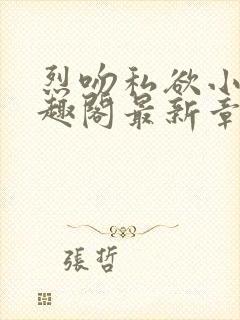 烈吻私欲小
趣阁最新章
張哲